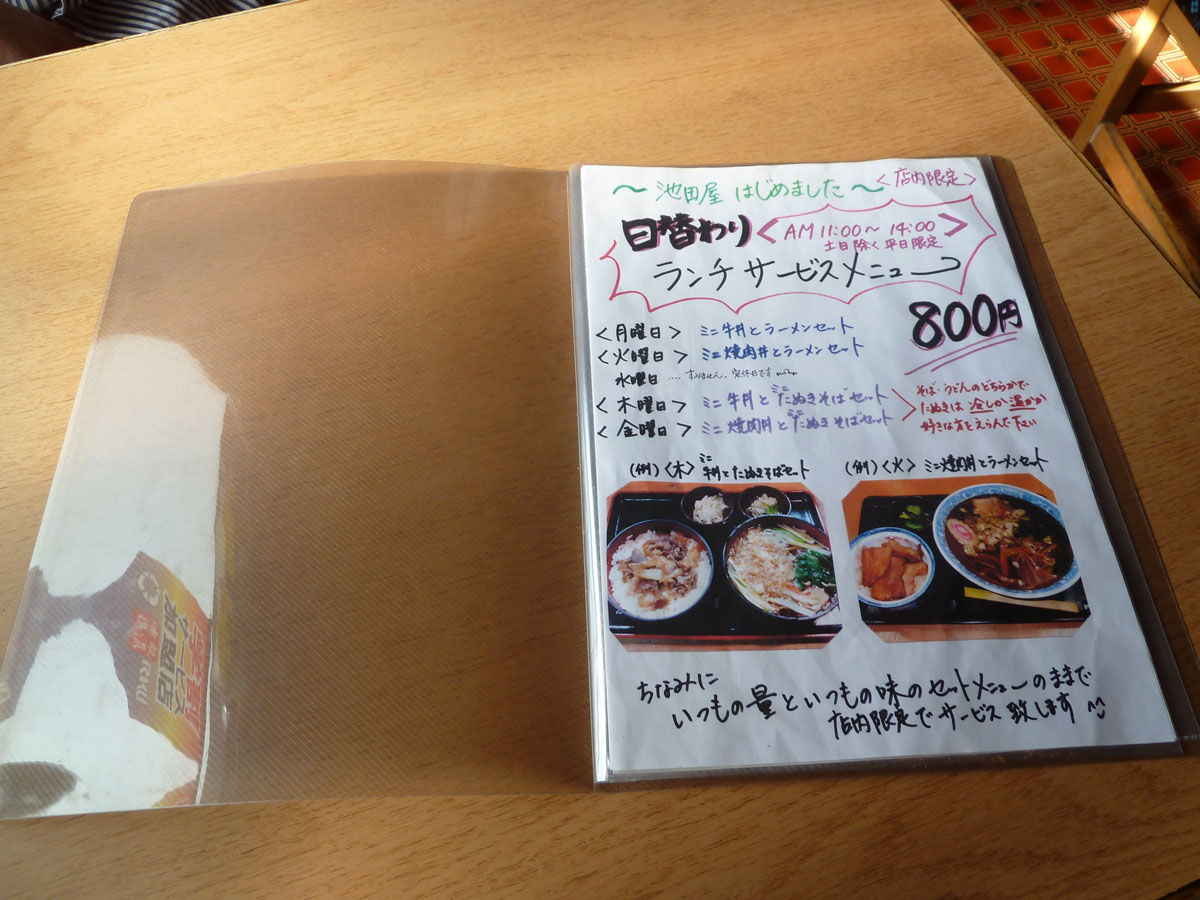 ～ 池田屋 はじめました ～ <店内限定>
日替わり <AM11:00～14:00>
土日除く平日限定
ランチサービスメニュー
800円
<月曜日> ミニ牛丼とラーメンセット
<火曜日> ミニ焼肉丼とラーメンセット
水曜日 .... すみません、定休日です
<木曜日> ミニ牛丼とミニたぬきそばセット
<金曜日> ミニ焼肉丼とミニたぬきそばセット
そば・うどんのどちらかで
たぬきは 冷しか温かか
好きな方をえらんで下さい
(例)<木> ミニ牛丼とたぬきそばセット
(例)<火> ミニ焼肉丼とラーメンセット
ちなみに
いつもの量といつもの味のセットメニューのままで
店内限定でサービス致します
サービス
加盟店